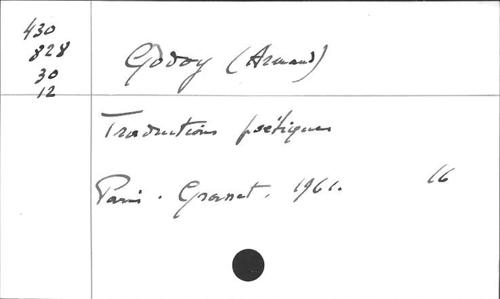 430
828
30
12
Godoy (Armand)
Traductions poétiques
Paris. Grasset. 1961. 16